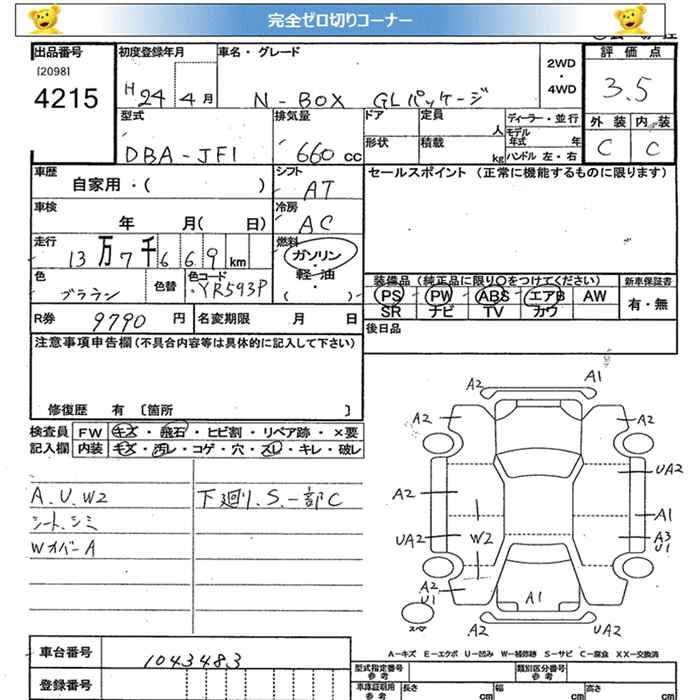 完全ゼロ切りコーナー
出品番号 初度登録年月 車名・グレード 評価点
[2098]
4215
H24 4月 N-BOX GLパッケージ 2WD・4WD 3.5
型式 排気量 ドア 定員 人 ディーラー・並行 外装 内装
DBA-JF1 660cc 形状 積載 kg モデル年式 年 ハンドル 左・右 C C
車歴 シフト セールスポイント (正常に機能するものに限ります)
自家用・( ) AT
車検 冷房
年 月( 日) AC
走行 燃料
13万7千669km ガソリン・軽・油( )
色 色替 色コード
ブラウン YR593P
装備品 (純正品に限り○をつけてください) 新車保証書
PS PW ABS エアB AW 有・無
SR ナビ TV カワ
R券 9790円 名変期限 月 日 後日品
注意事項申告欄 (不具合内容等は具体的に記入して下さい)
修復歴 有 [箇所 ]
検査員 FW キズ・飛石・ヒビ割・リペア跡・×要
記入欄 内装 キズ・汚レ・コゲ・穴・スレ・キレ・破レ
A.U.W2 下廻り.S.一部C
シート.シミ
WオバーA
A2 A1
A2 A2
A2 UA2
A1
UA2 W2 A3
U1
A2 A1
U1
スペア A2 UA2
A−キズ E−エクボ U−凹み W−補修跡 S−サビ C−腐食 XX−交換済
車台番号 1043483
登録番号
型式指定番号 類別区分番号
参考 参考
車庫証明用 長さ 幅 高さ
参考 cm cm cm